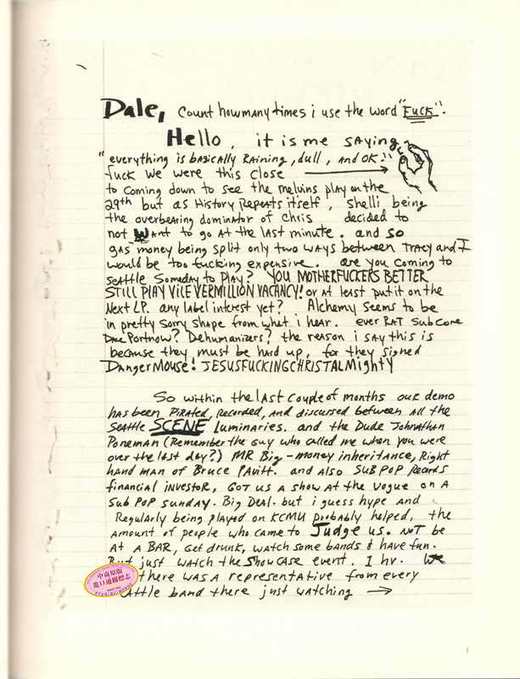 Dale, Count how many times i use the word "FUCK".
Hello, it is me saying,
"everything is basically Raining, dull, and OK."
fuck we were this close
to coming down to see the melvins play on the
29th but as History Repeats itself, Shelli being
the overbearing dominator of chris decided to
not Want to go At the last minute. and so
gas money being split only two ways between TRACY and I
would be too fucking expensive. are you coming to
seattle Someday to Play? YOU MOTHERFUCKERS BETTER
STILL PLAY VILE VERMILLION VACANCY! or at least put it on the
Next LP. any label interest yet? Alchemy seems to be
in pretty sorry shape from what i hear. ever RAT Subcore
Portnow? Dehumanizers? the reason i say this is
because they must be hard up, for they signed
DangerMouse! JESUSFUCKINGCHRISTALMighty
So within the last couple of months our demo
has been Pirated, recorded, and discussed between all the
Seattle SCENE luminaries. and the Dude Johnathan
Poneman (Remember the guy who called me when you were
over the last day?) MR Big-money inheritance, Right
hand man of Bruce Pavitt. and also SUB POP Records
financial investor, Got us a show at the Vogue on a
Sub Pop Sunday. Big Deal. but i guess hype and
Regularly being played on KCMU probably helped, the
amount of people who came to Judge us. NOT be
At A BAR, Get drunk, watch some bands & have fun.
But just watch the showcase event. 1 hr. We
there was a representative from every
attle band there just watching →